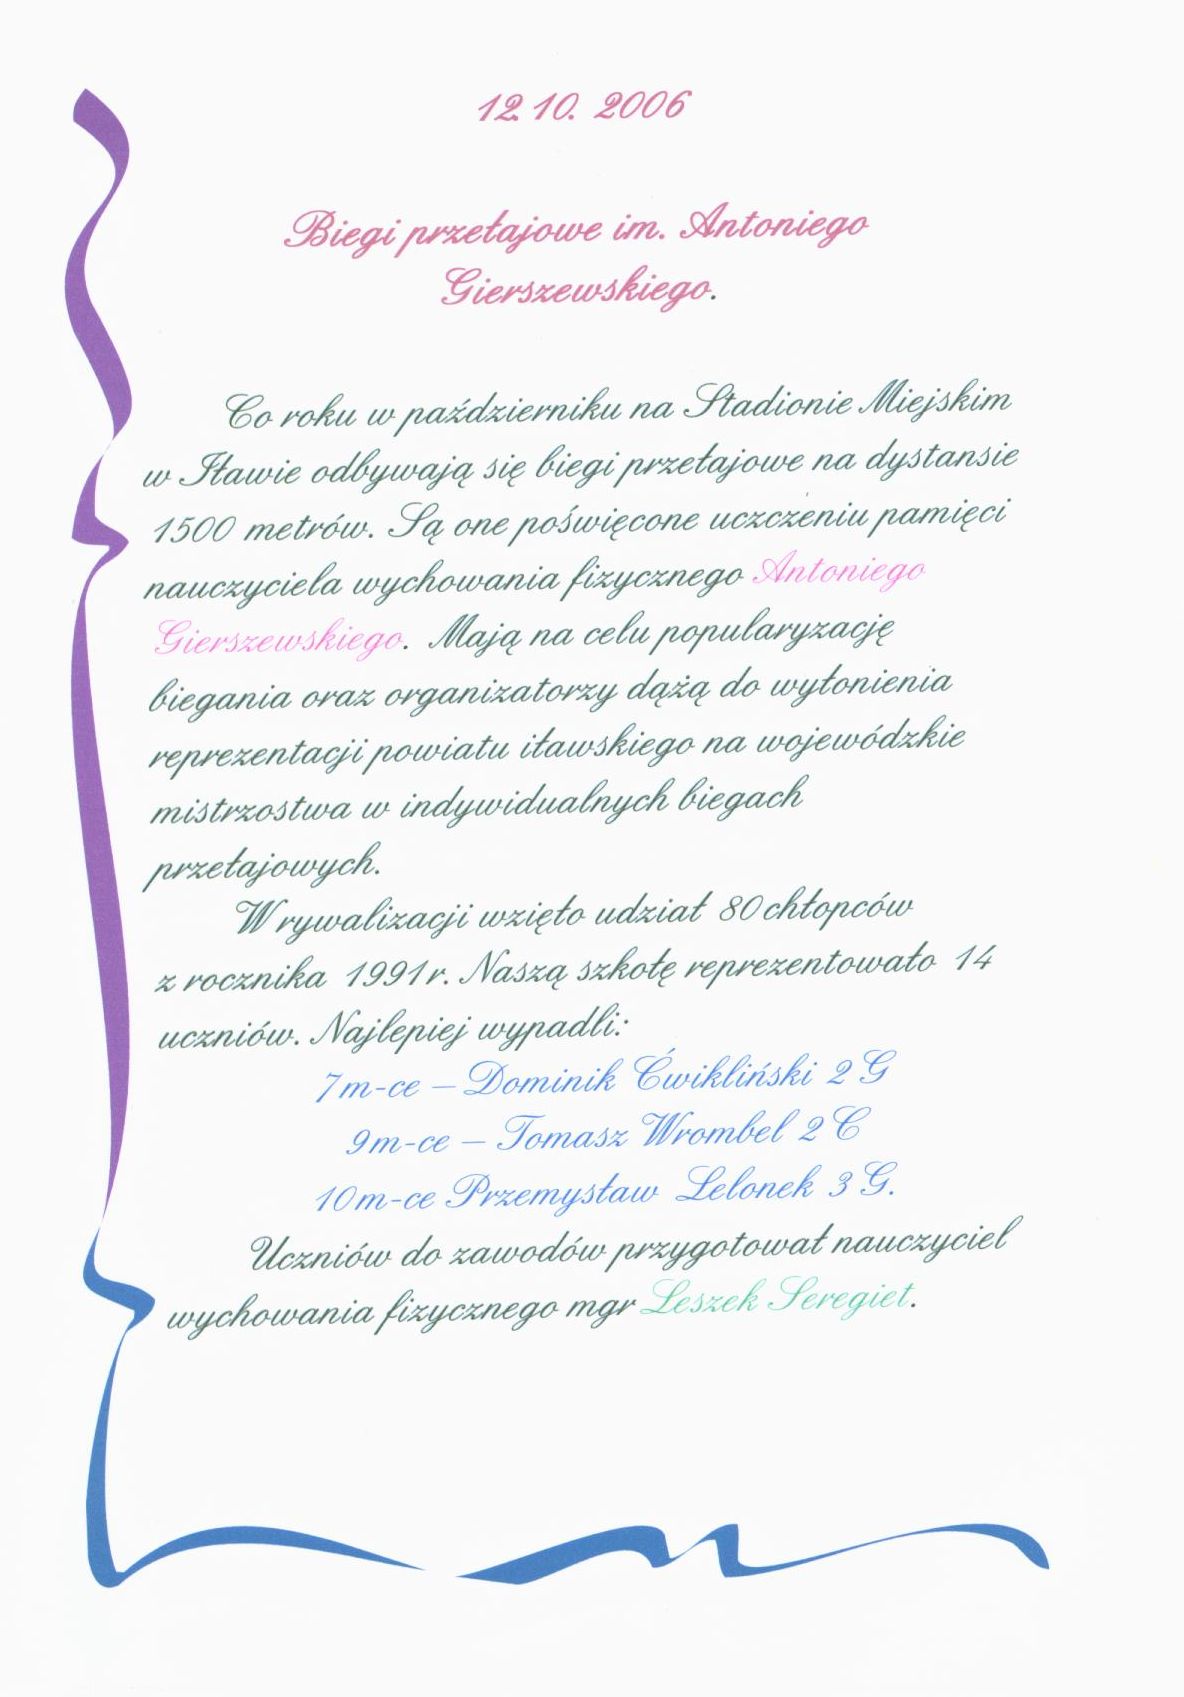 12. 10. 2006
Biegi przełajowe im. Antoniego
Gierszewskiego.
Co roku w październiku na Stadionie Miejskim
w Iławie odbywają się biegi przełajowe na dystansie
1500 metrów. Są one poświęcone uczczeniu pamięci
nauczyciela wychowania fizycznego Antoniego
Gierszewskiego. Mają na celu popularyzację
biegania oraz organizatorzy dążą do wyłonienia
reprezentacji powiatu iławskiego na wojewódzkie
mistrzostwa w indywidualnych biegach
przełajowych.
W rywalizacji wzięło udział 80 chłopców
z rocznika 1991 r. Naszą szkołę reprezentowało 14
uczniów. Najlepiej wypadli:
7 m-ce – Dominik Ćwikliński 2 G
9 m-ce – Tomasz Wrombel 2 C
10 m-ce Przemysław Lelonek 3 G.
Uczniów do zawodów przygotował nauczyciel
wychowania fizycznego mgr Leszek Seregiet.